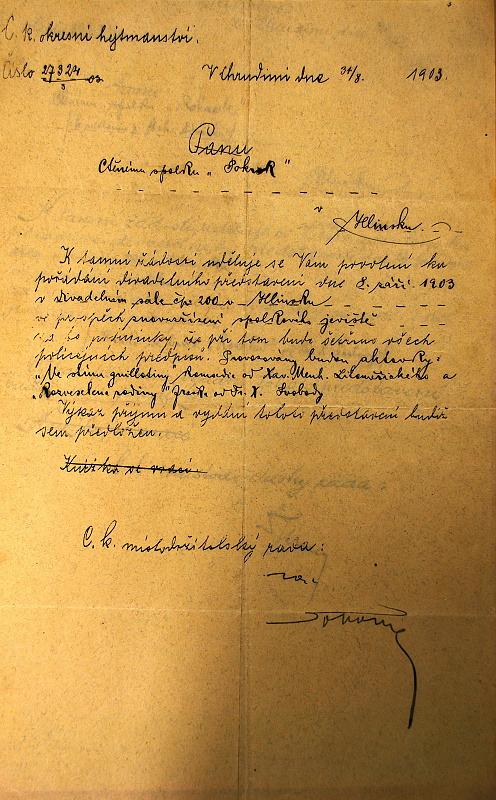 C. k. okresní hejtmanství.
Číslo 27324 / 3 03 V Chrudimi dne 31/8. 1903.
Panu
Ctěnému spolku „Pokrok"
v
Hlinsku.
K tamní žádosti uděluje se Vám povolení ku
pořádání divadelního představení dne 8. září 1903
v divadelním sále čp. 200 v Hlinsku
ve prospěch znovuzřízení spolkového jeviště
za to podmínky, že při tom bude šetřeno všech
policejních předpisů. Provozovány budou aktovky:
„Ve stínu guillotiny" Komedie od Litoměřického a
„Rozveselené rodiny" Fraška od Fr. X. Svobody
Výkaz příjmu a vydání tohoto představení budiž
sem předložen.
Knížka se vrací.
C. k. místodržitelský rada: